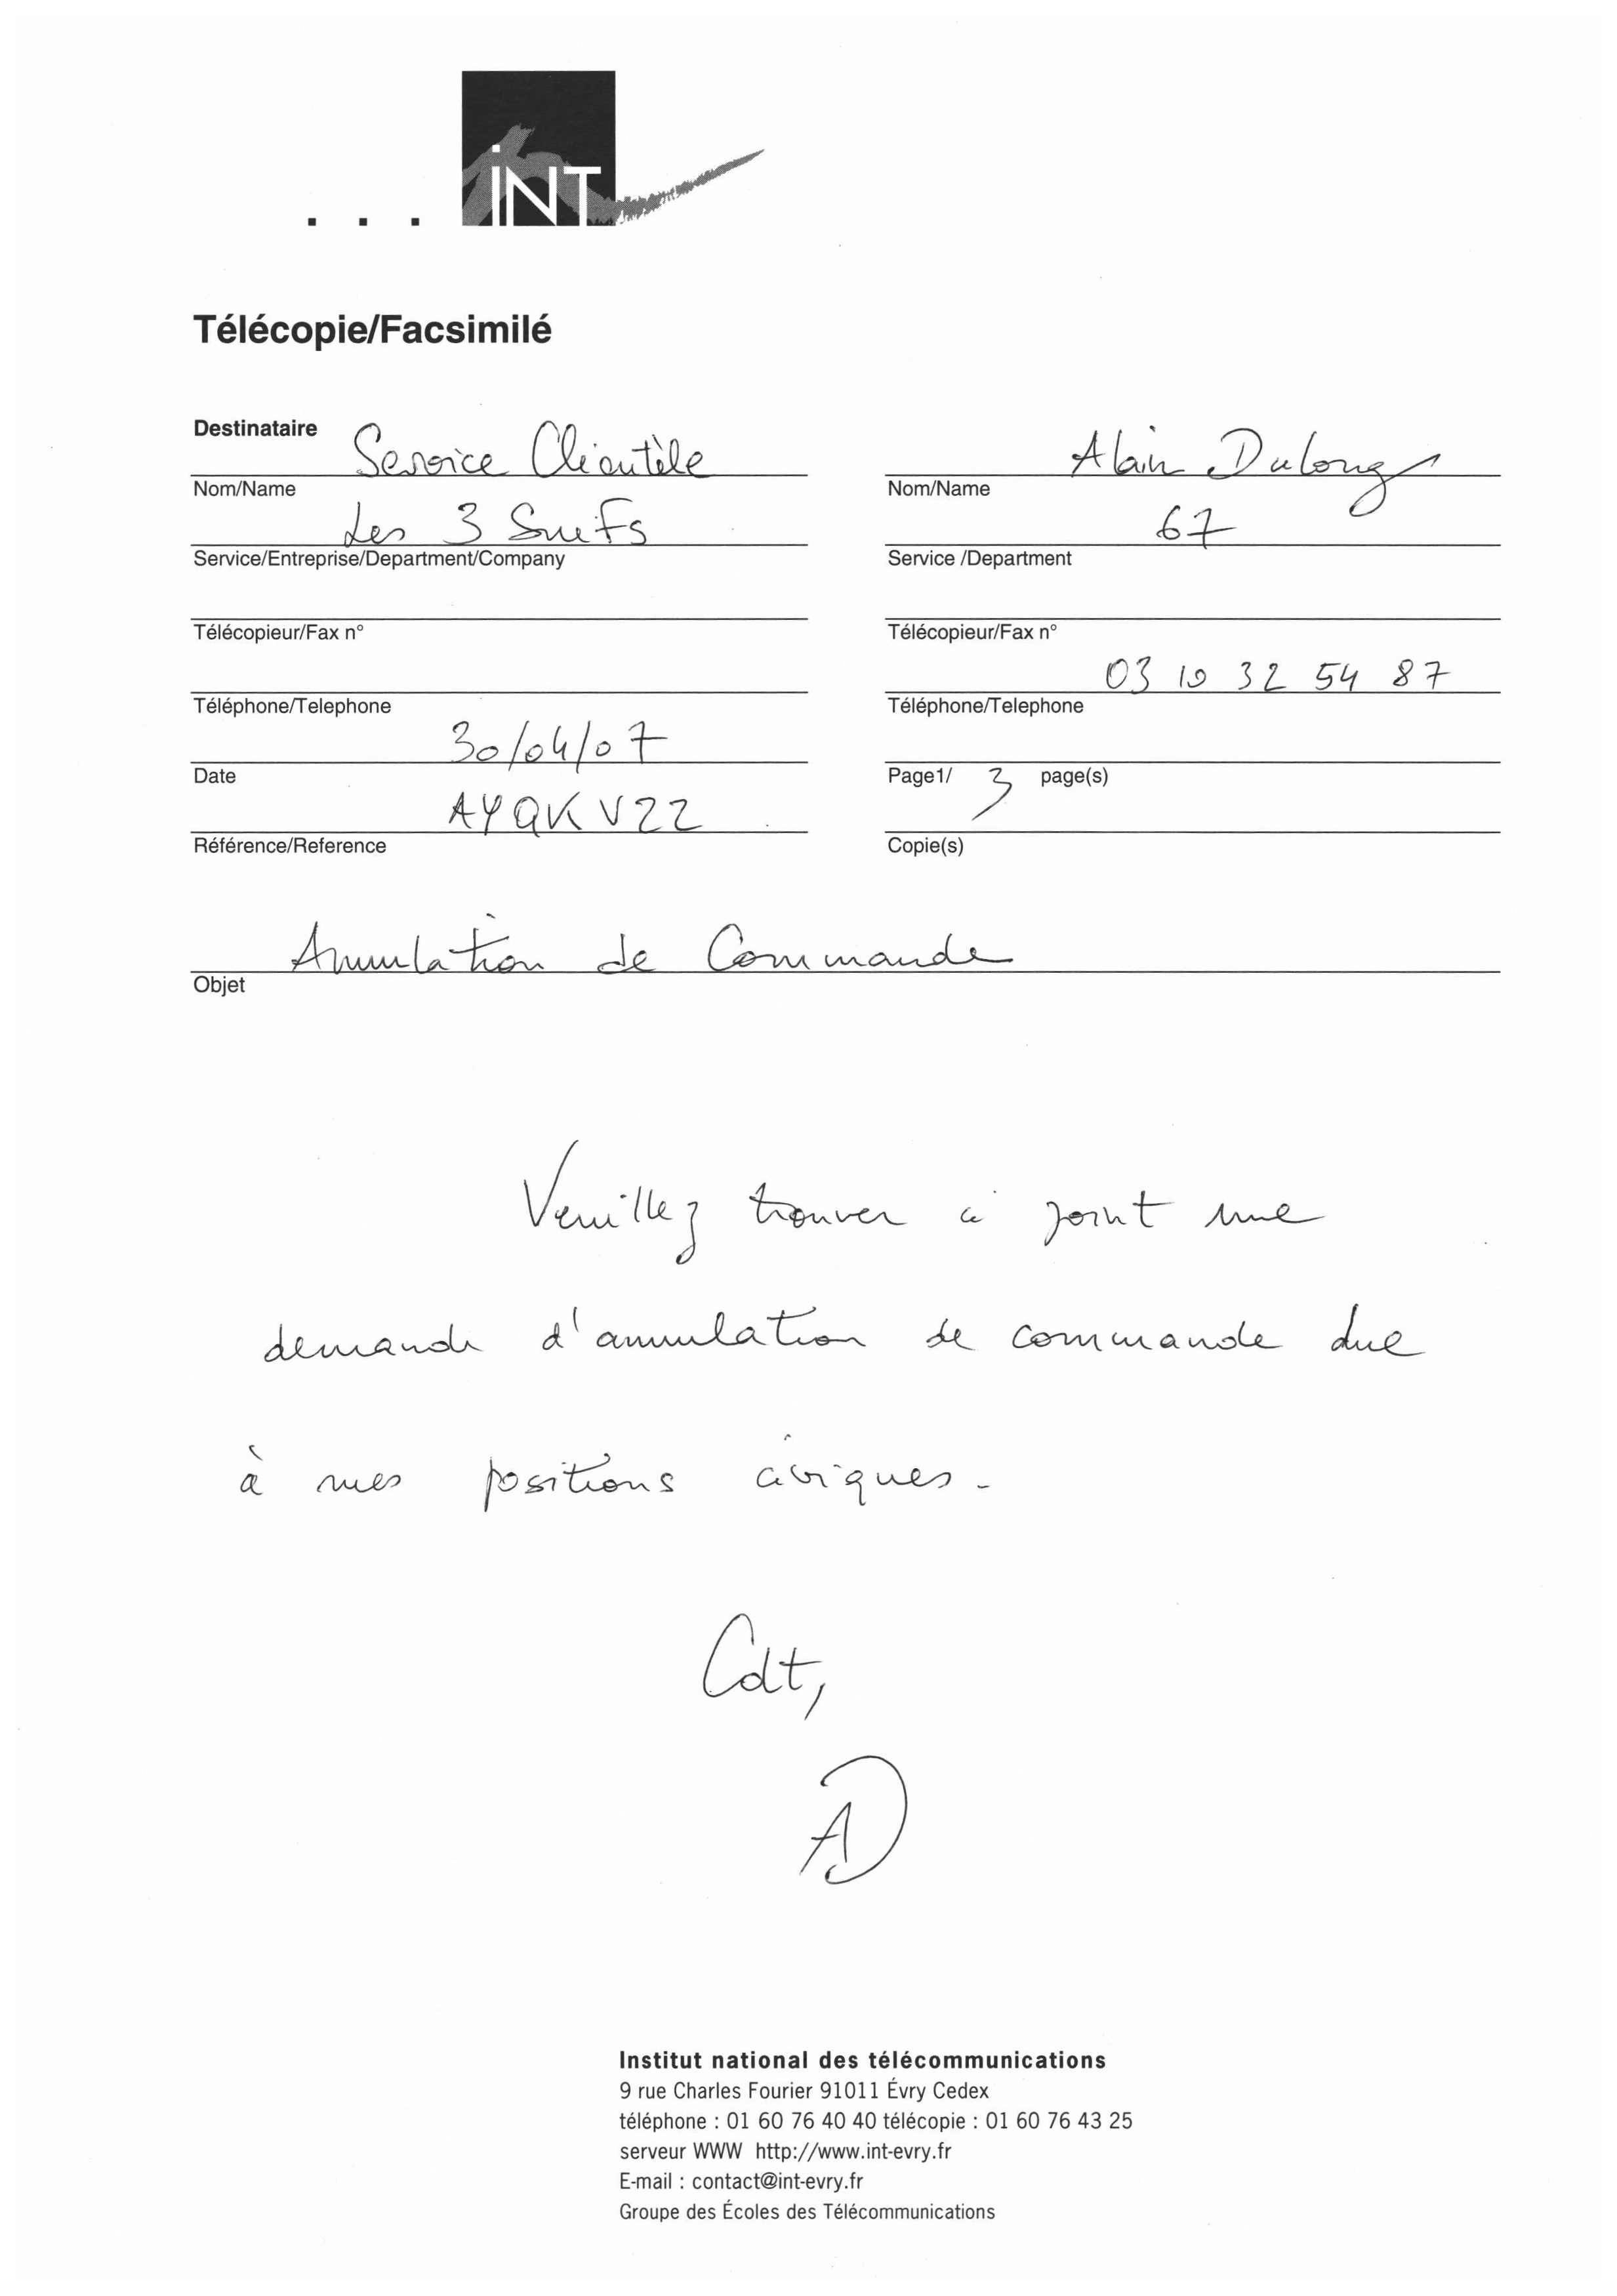 ... iNT
Télécopie/Facsimilé
Destinataire Service Clientèle
Nom/Name
Les 3 Suifs
Service/Entreprise/Department/Company
Télécopieur/Fax n°
Téléphone/Telephone
30/04/07
Date
AYQKV22
Référence/Reference
Alain Dulong
Nom/Name
67
Service /Department
Télécopieur/Fax n°
03 10 32 54 87
Téléphone/Telephone
Page1/ 3 page(s)
Copie(s)
Annulation de Commande
Objet
Veuillez trouver ci joint une
demande d'annulation de commande due
à mes positions civiques.
Cdt,
AD
Institut national des télécommunications
9 rue Charles Fourier 91011 Évry Cedex
téléphone : 01 60 76 40 40 télécopie : 01 60 76 43 25
serveur WWW http://www.int-evry.fr
E-mail : contact@int-evry.fr
Groupe des Écoles des Télécommunications